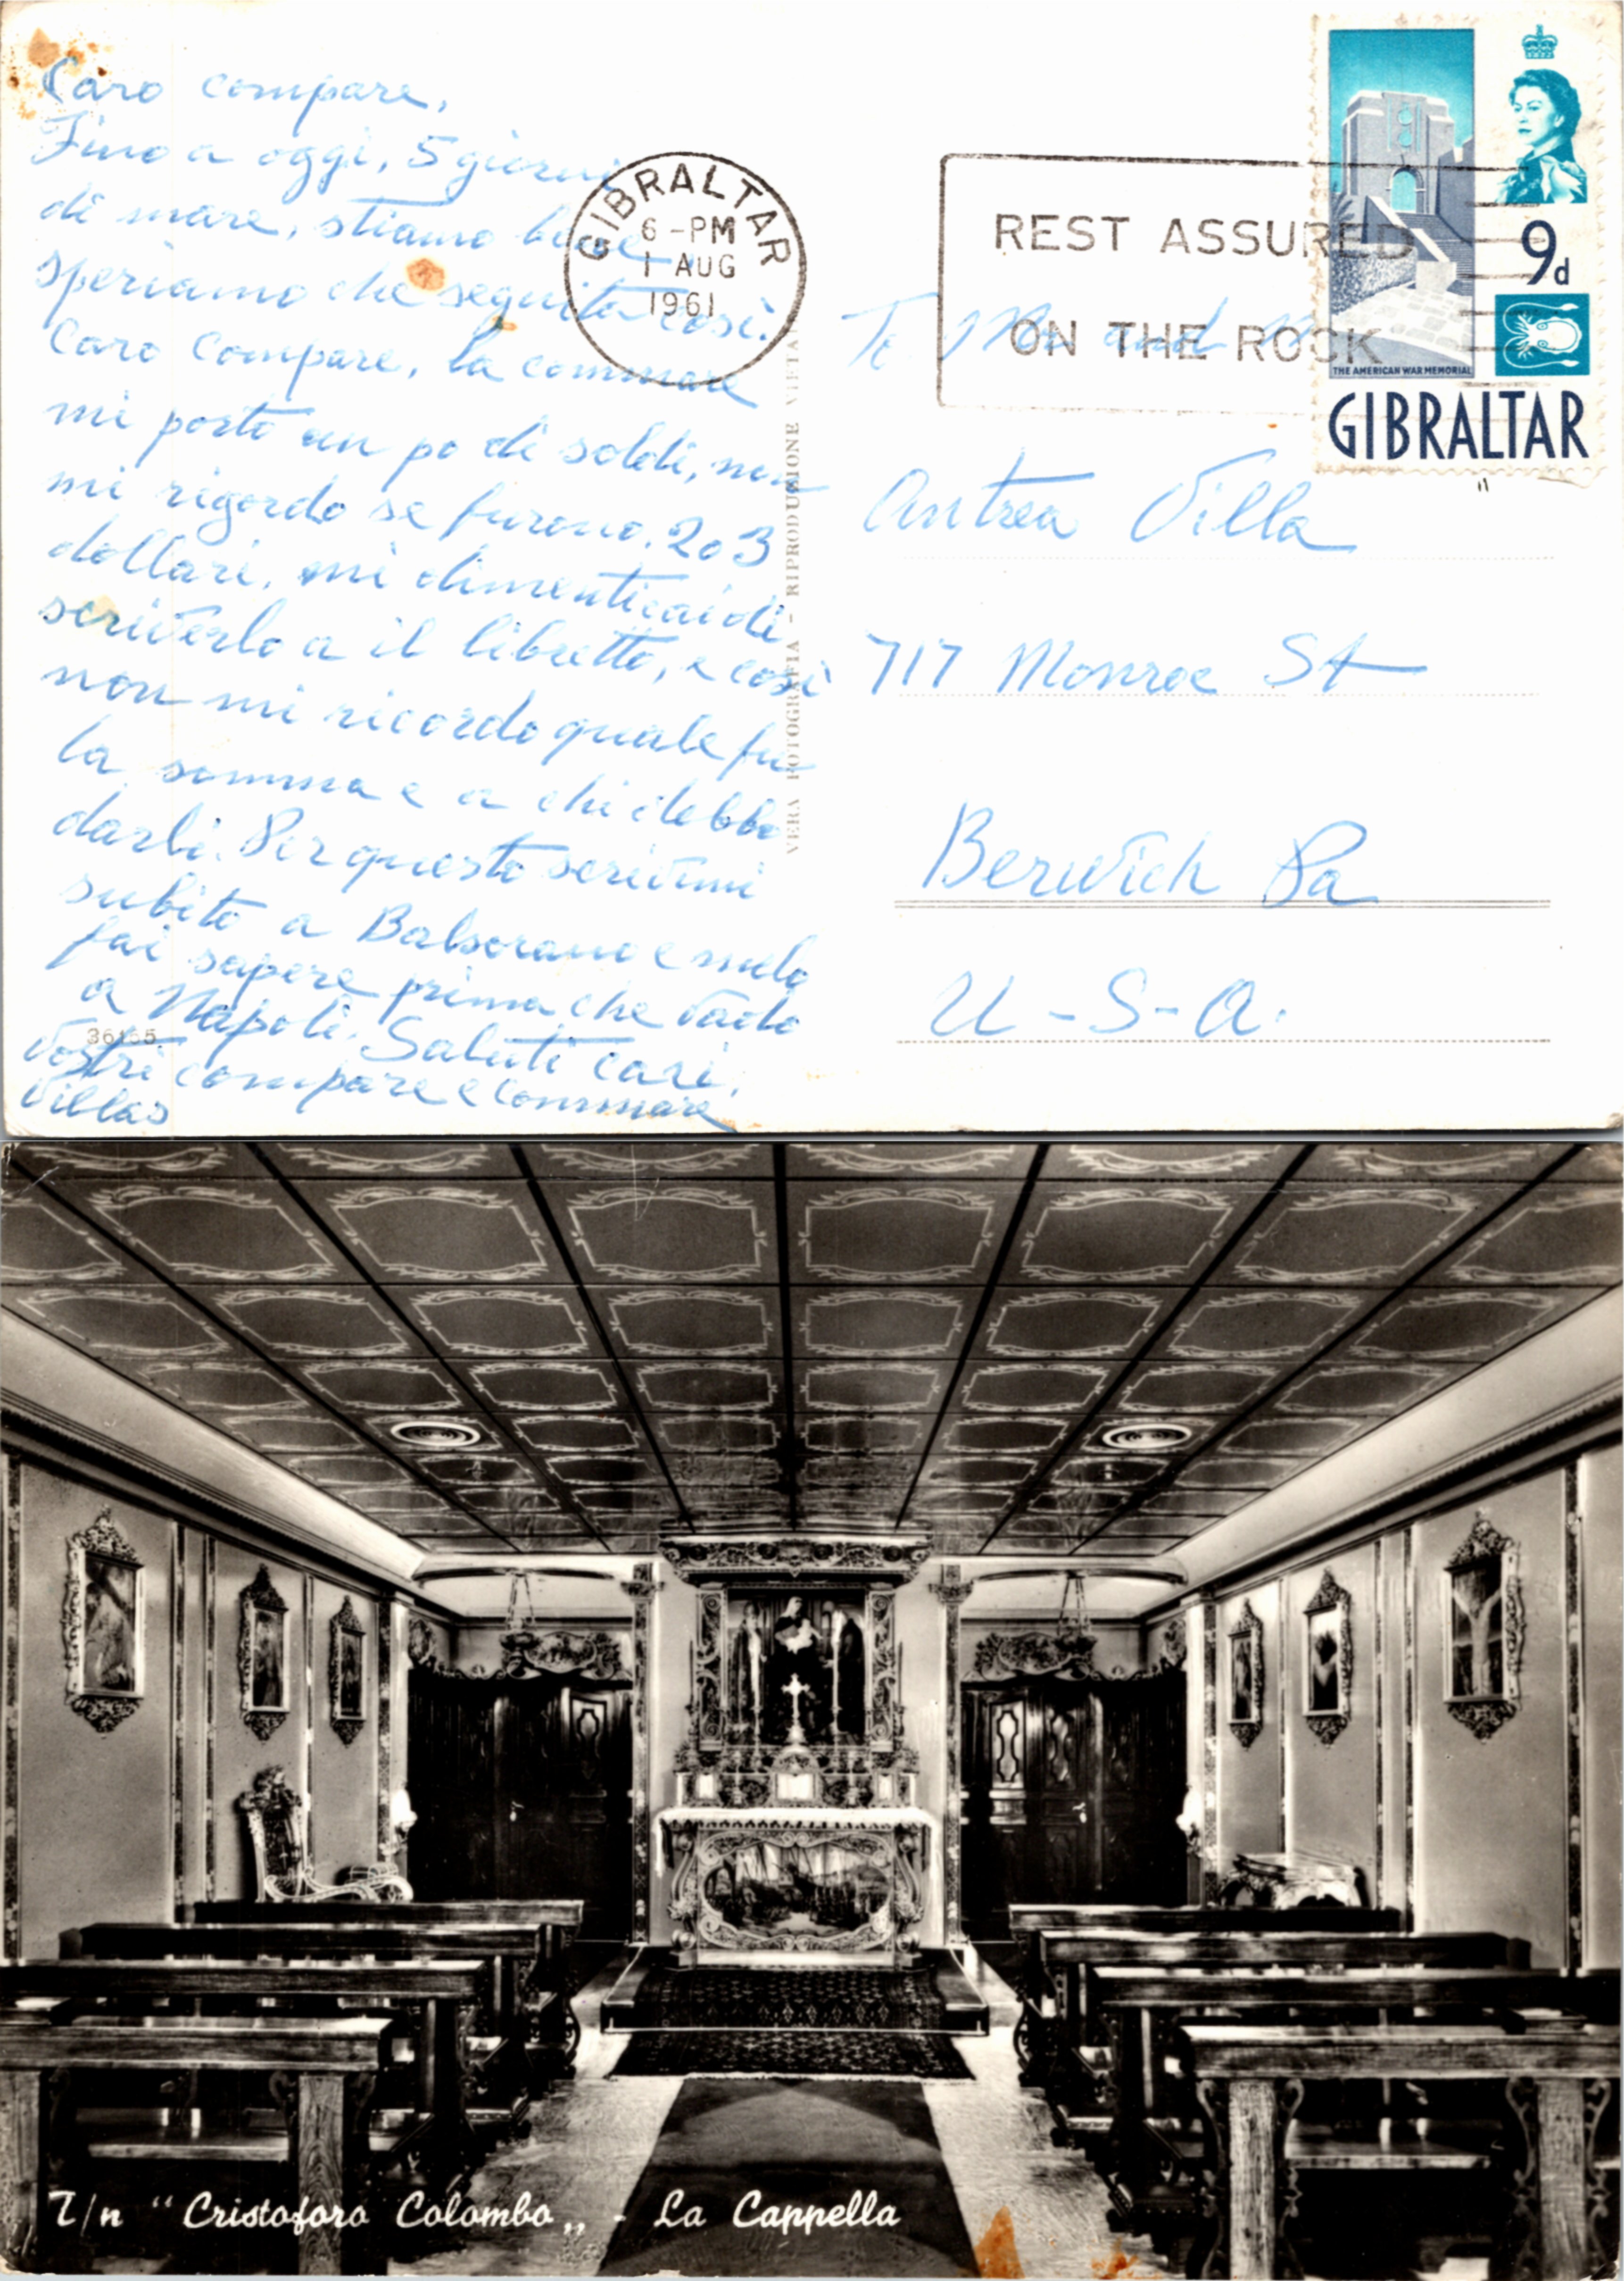 Caro compare,
Fino a oggi, 5 giorni
di mare, stiamo bene,
speriamo che seguita così.
Caro Compare, la commare
mi porto un po di soldi, non
mi rigordo se furono, 2 o 3
dollari, mi dimenticai di
scriverlo a il libretto, e così
non mi ricordo quale fu
la somma e a chi debbo
darli. Per questo scrivimi
subito a Balsorano e melo
fai sapere prima che vado
a Napoli. Saluti cari,
vostri compare e commare
Villas
36155
VERA FOTOGRAFIA - RIPRODUZIONE VIETATA
GIBRALTAR
6-PM
1 AUG
1961
REST ASSURED
ON THE ROCK
9d
THE AMERICAN WAR MEMORIAL
GIBRALTAR
To Mr and
Antrea Villa
717 Monroe St
Berwich Pa
U-S-A.
T/n “Cristoforo Colombo„ - La Cappella